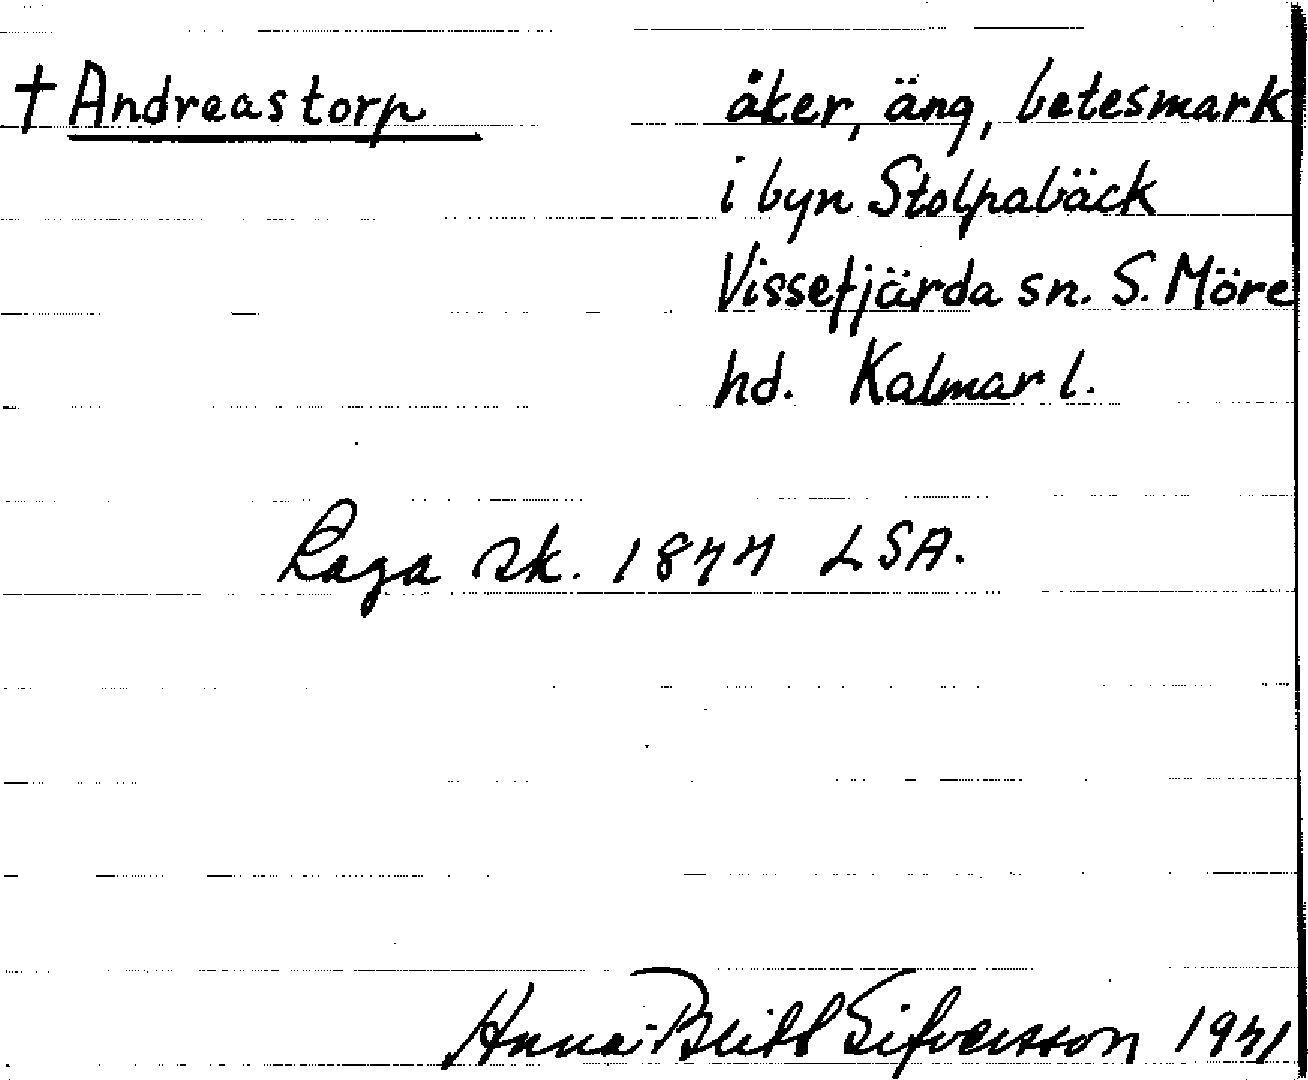 † Andreastorp åker, äng, betesmark
i byn Stolpabäck
Vissefjärda sn. S. Möre
hd. Kalmar l.
Laga sk. 1877 LSA.
Anna-Britt Silfversson 1971